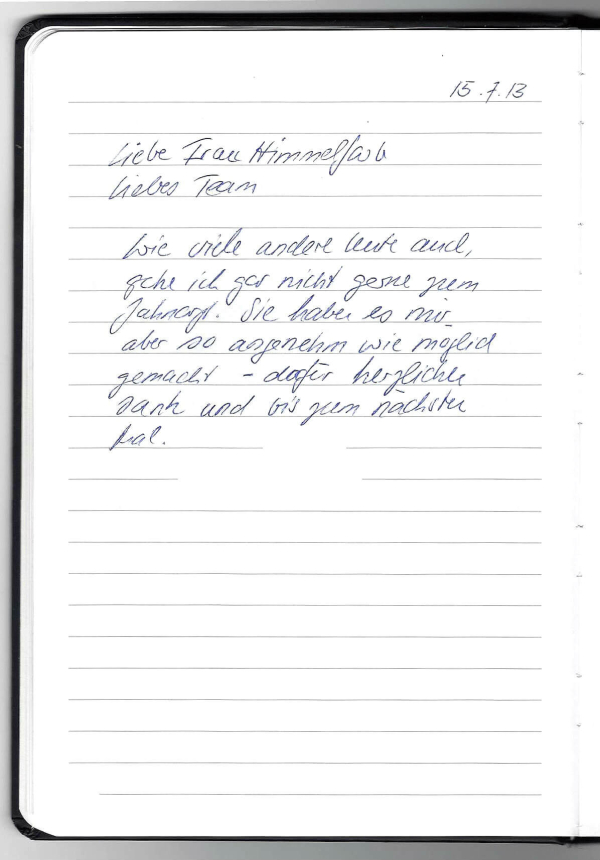 15.7.13
Liebe Frau Himmelfarb
Liebes Team
Wie viele andere Leute auch,
gehe ich gar nicht gerne zum
Zahnarzt. Sie haben es mir
aber so angenehm wie möglich
gemacht - dafür herzlichen
Dank und bis zum nächsten
Mal.